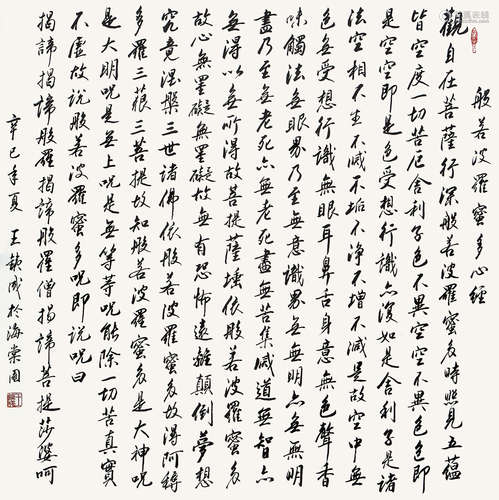 般若波羅蜜多心經
觀自在菩薩行深般若波羅蜜多時照見五蘊
皆空度一切苦厄舍利子色不異空空不異色色即
是空空即是色受想行識亦復如是舍利子是諸
法空相不生不滅不垢不淨不增不減是故空中無
色無受想行識無眼耳鼻舌身意無色聲香
味觸法無眼界乃至無意識界無無明亦無無明
盡乃至無老死亦無老死盡無苦集滅道無智亦
無得以無所得故菩提薩埵依般若波羅蜜多
故心無罣礙無罣礙故無有恐怖遠離顛倒夢想
究竟涅槃三世諸佛依般若波羅蜜多故得阿耨
多羅三藐三菩提故知般若波羅蜜多是大神呪
是大明呪是無上呪是無等等呪能除一切苦真實
不虛故說般若波羅蜜多呪即說呪曰
揭諦揭諦般羅揭諦般羅僧揭諦菩提莎婆呵
辛巳年夏王鉄成於海棠園